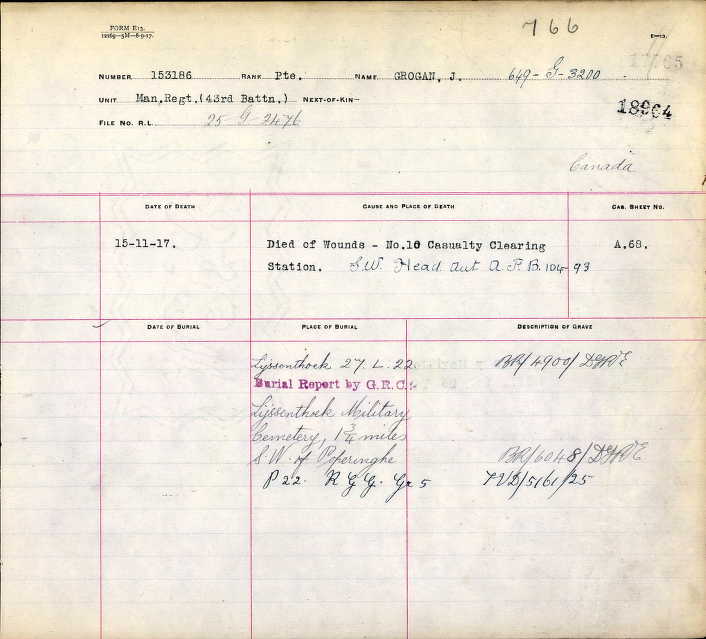 FORM E13.
766
NUMBER 153186 RANK Pte. NAME GROGAN, J. 649-G-3200
UNIT Man.Regt.(43rd Battn.) NEXT-OF-KIN—
18964
FILE NO. R.L. 25-G-2476
Canada
DATE OF DEATH CAUSE AND PLACE OF DEATH CAS. SHEET NO.
15-11-17. Died of Wounds - No.10 Casualty Clearing A.68.
Station. S.W. Head aut A.F.B. 104-93
DATE OF BURIAL PLACE OF BURIAL DESCRIPTION OF GRAVE
Lijssenthoek 27. L. 22 BR/4900/DGR&E
Burial Report by G.R.C.
Lijssenthoek Military
Cemetery, 1 3/4 miles
S.W. of Poperinghe BR/6048/DGR&E
P 22. R G G. Gr 5 IVD/5161/25